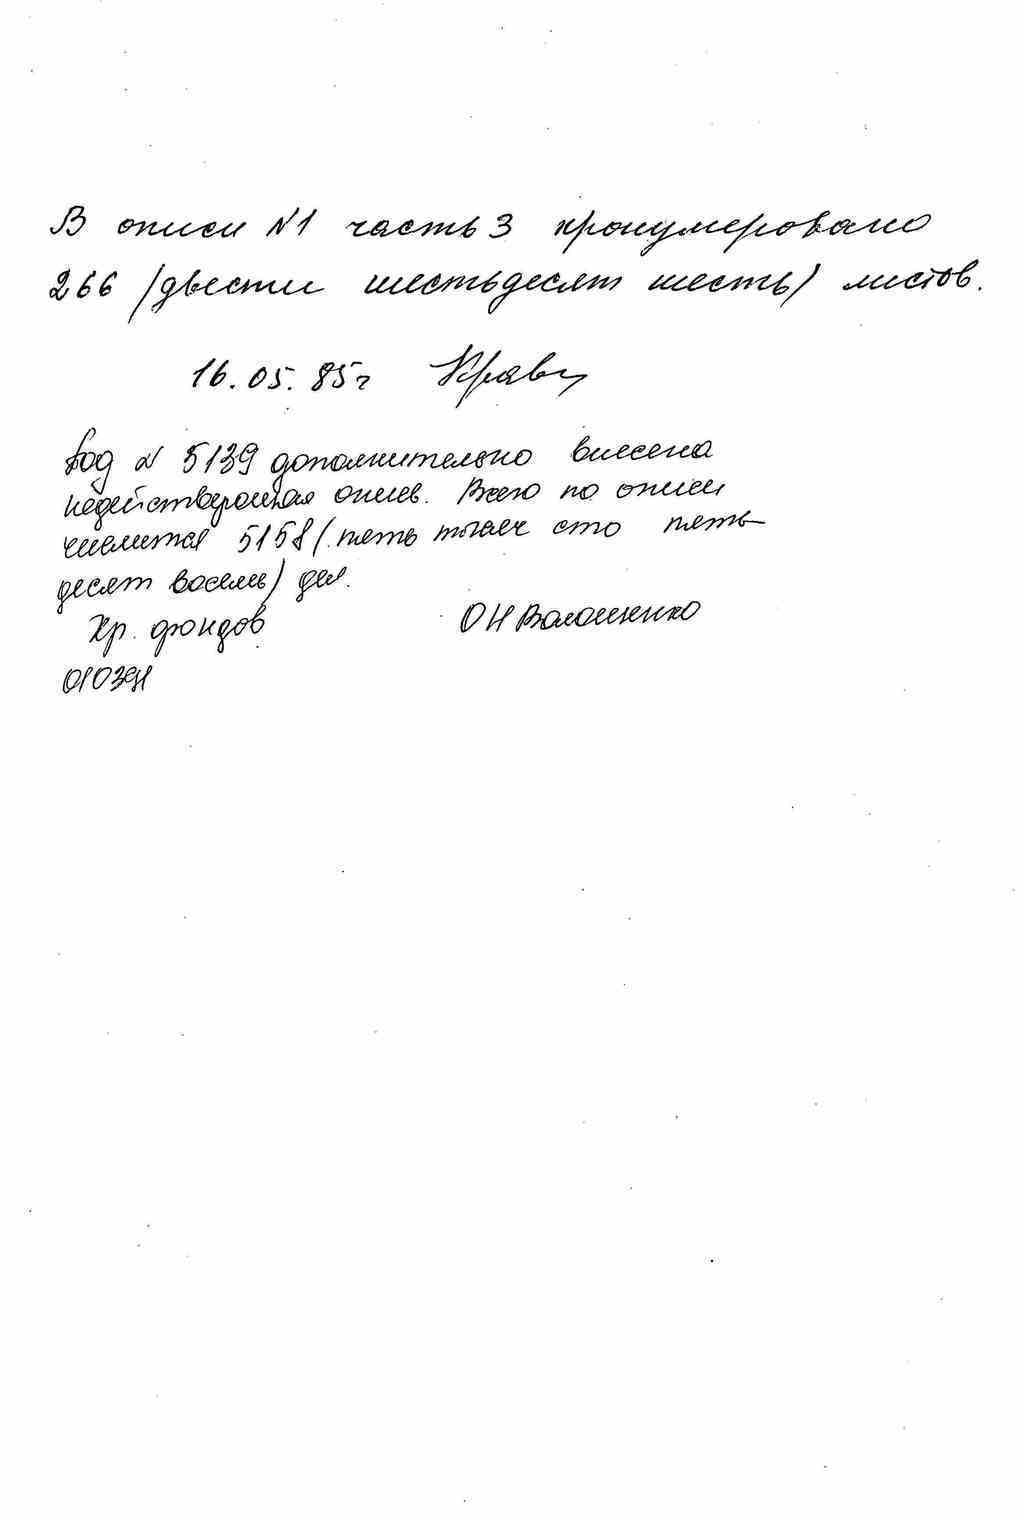 В описи №1 часть 3 пронумеровано
266 /двести шестьдесят шесть/ листов.
16.05.85г Кравц
Под № 5139 дополнительно внесена
недействующая опись. Всего по описи
числится 5158 (пять тысяч сто пять-
десят восемь) дел.
Хр. фондов ОН Волошенко